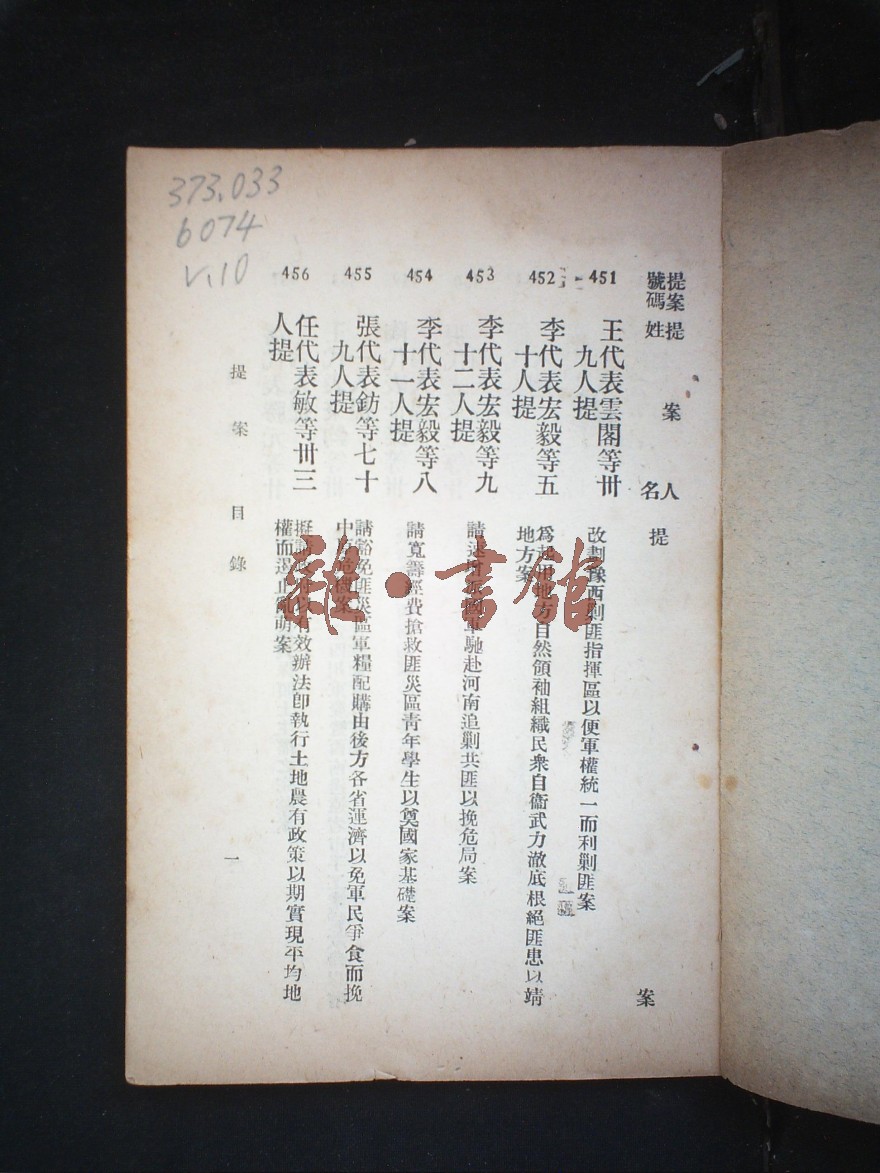 373.033
6074
v.10
提案號碼
提案人姓名
提案
451
王代表雲閣等卅九人提
改劃豫西剿匪指揮區以便軍權統一而利剿匪案
452
李代表宏毅等五十人提
爲起用地方自然領袖組織民衆自衞武力澈底根絕匪患以靖
地方案
453
李代表宏毅等九十二人提
請速國軍馳赴河南追剿共匪以挽危局案
454
李代表宏毅等八十一人提
請寬籌經費搶救匪災區青年學生以奠國家基礎案
455
張代表鈁等七十九人提
請豁免匪災區軍糧配購由後方各省運濟以免軍民爭食而挽
中案
456
任代表敏等卅三人提
擬請以有效辦法卽執行土地農有政策以期實現平均地
權而遏止亂萌案
提案目錄
一
雜·書館